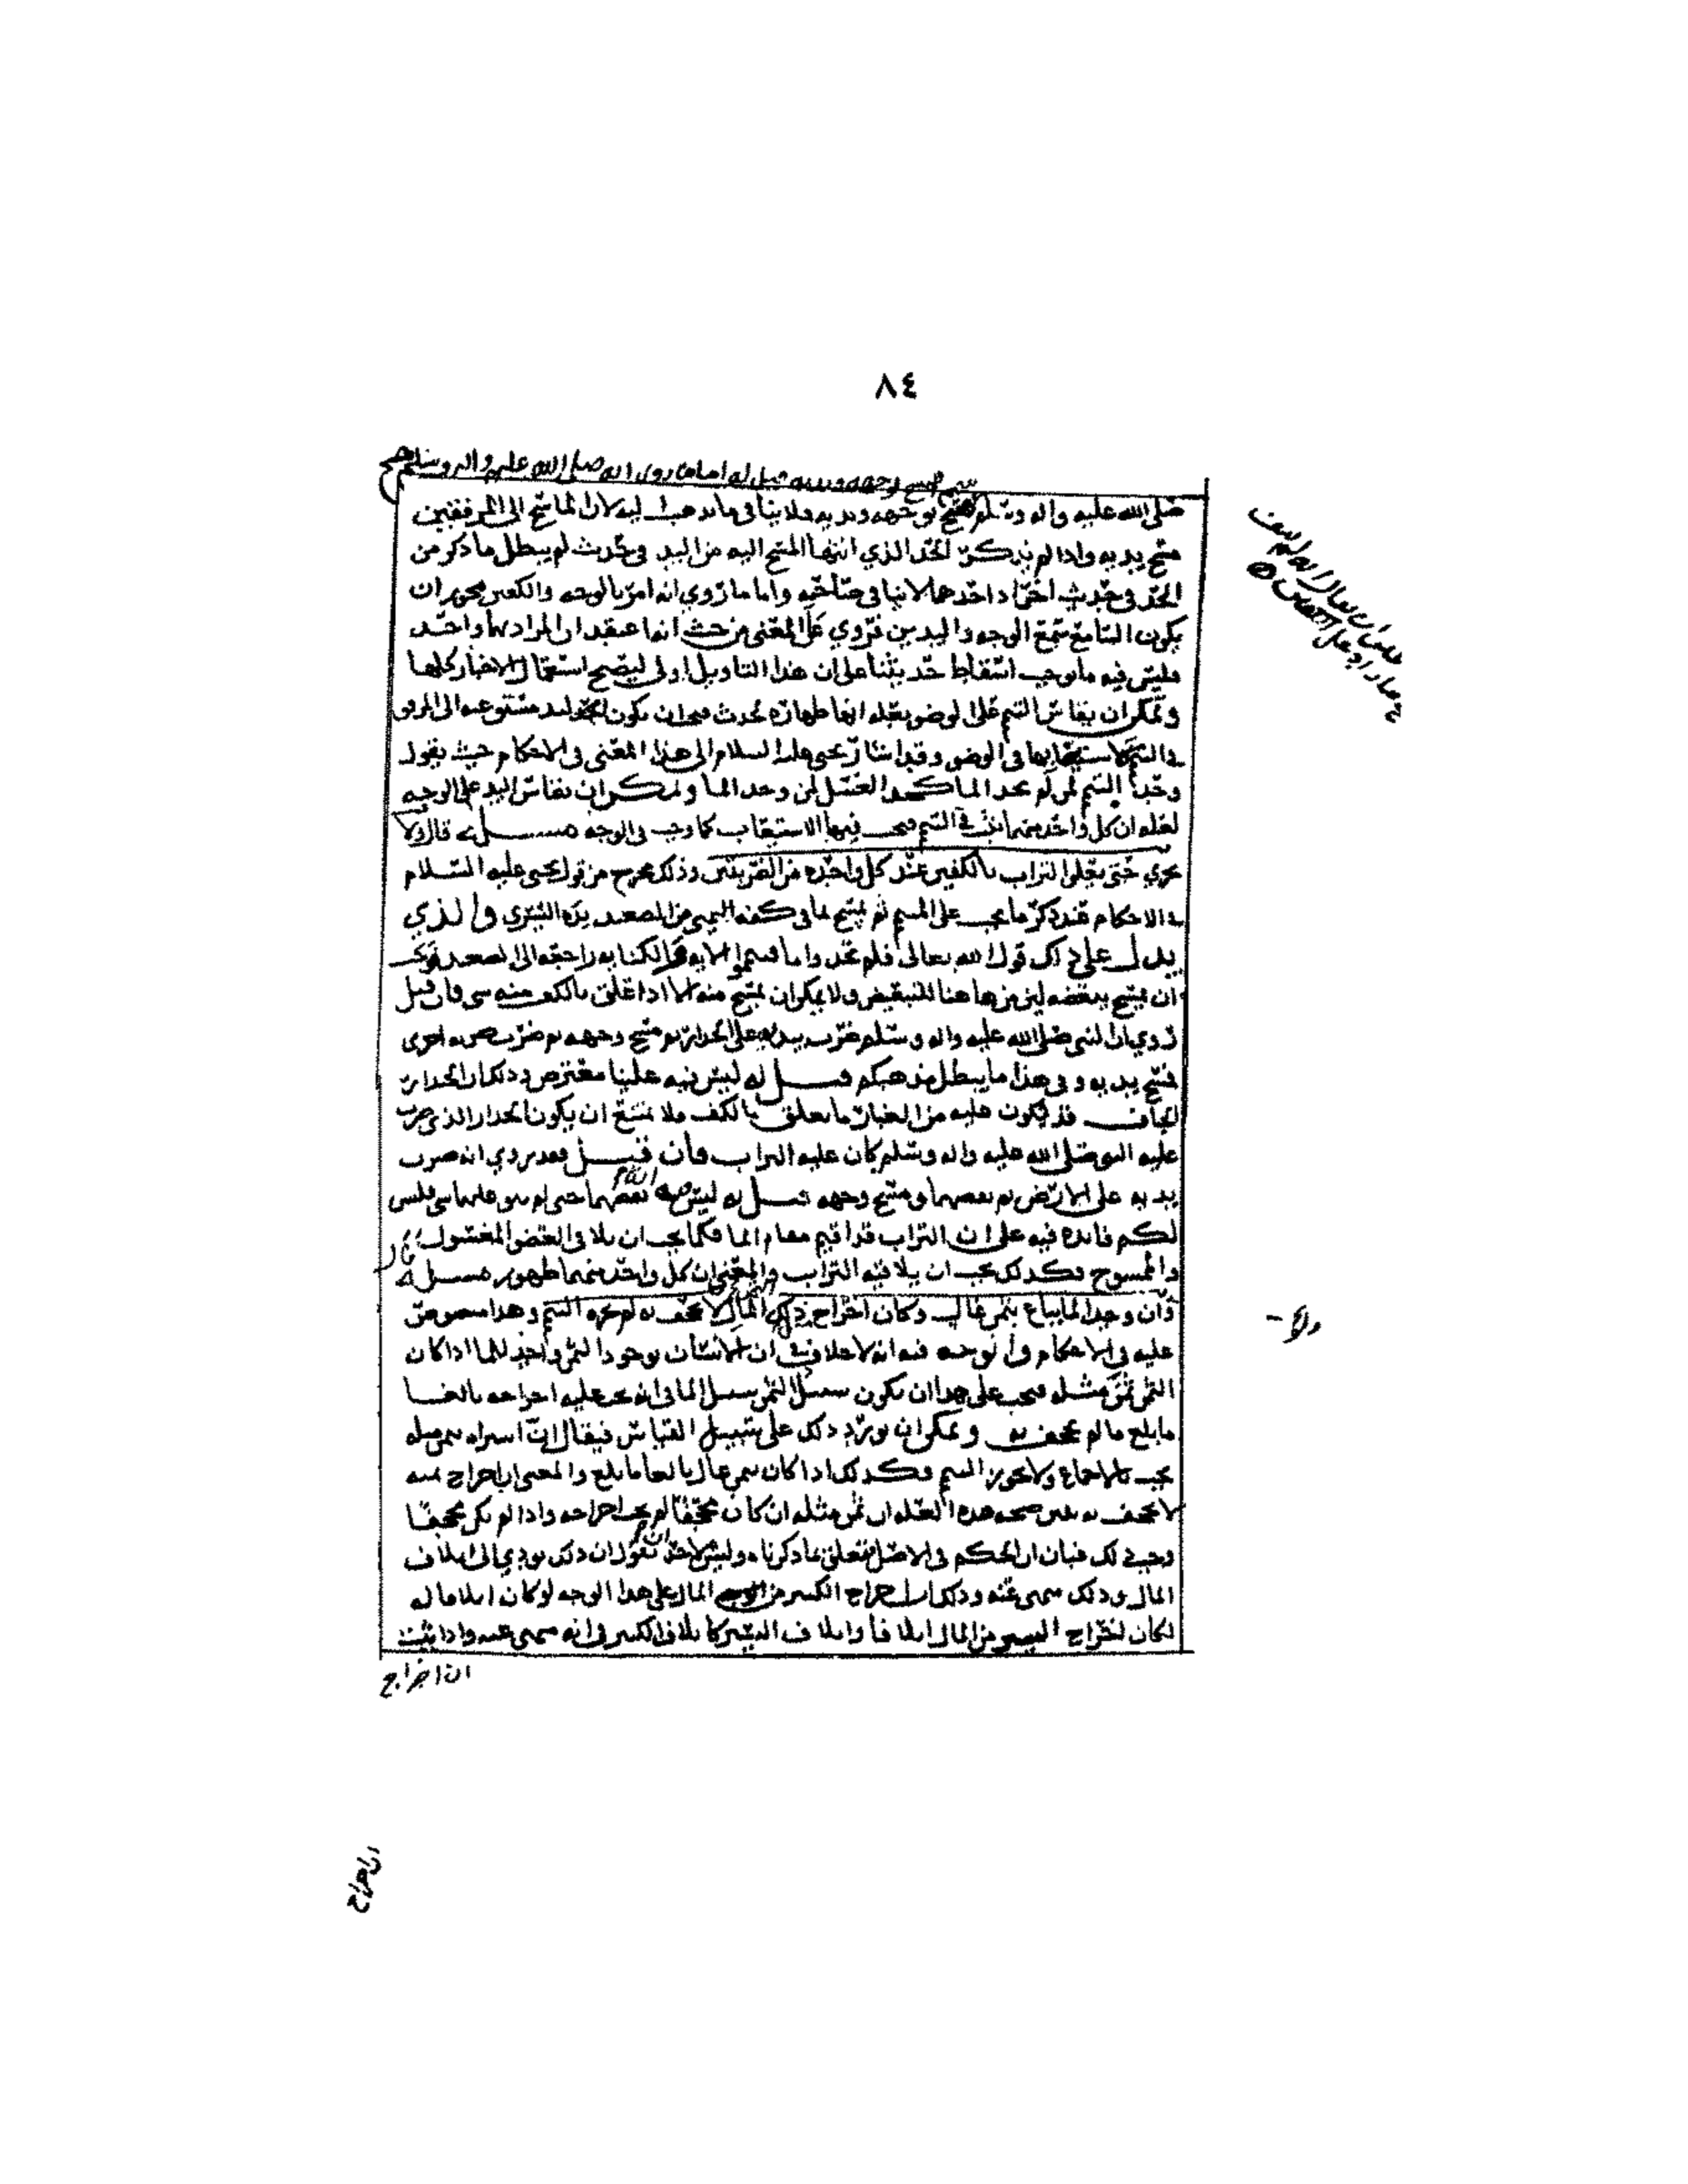 ٨٤
فمسح وجهه ويديه قيل له اما ما روي انه صلى الله عليه واله وسلم
صلى الله عليه واله وسلم مسح وجهه ويديه فلا ينافي ما نذهب اليه لان الماسح الى المرفقين
مسح يديه واذا لم يذكر الحد الذي انتها المسح اليه من اليد في حديث لم يبطل ما ذكر من
الحد في حديث اخر اذ احدهما لا ينافي صاحبه واما ما روي انه امر بالوجه والكفين فيجوز ان
يكون السامع سمع الوجه واليدين فروي على المعنى من حيث انه اعتقد ان المراد بهما واحد
فليس فيه ما يوجب اسقاط حديثنا على ان هذا التاويل اولى ليصح استعمال الاخبار كلها
ويمكن ان يقاس التيمم على الوضو بعلة انها طهارة لحدث فيجب ان يكون اليد مستوعبه الى المرفق
في التيمم كاستيعابها في الوضو وقد اشار يحيى عليه السلام الى هذا المعنى في الاحكام حيث يقول
وحد التيمم لمن لم يجد الما كحد الغسل لمن وجد الما ويمكن ان يقاس اليد على الوجه
لعلة ان كل واحد منهما يثبت في التيمم فيجب فيها الاستيعاب كما وجب في الوجه مسألة قال ولا
يجزي حتى يعلق التراب بالكفين عند كل واحدة من الضربتين وذلك مخرج من قول يحيى عليه السلام
في الاحكام عند ذكر ما يجب على المتيمم ثم يمسح بما في كفه اليمنى من الصعيد يده اليسرى والذي
يدل على ذلك قول الله تعالى فلم تجدوا ما فتيمموا الايه والكنايه راجعه الى الصعيد فوجب
ان يمسح ببعضه لان من هاهنا للتبعيض ولا يمكن ان يمسح منه الا اذا علق بالكف منه شي فان قيل
روي ان النبي صلى الله عليه واله وسلم ضرب بيده على الجدار ثم مسح وجهه ثم ضرب ضربه اخرى
فمسح يديه وفي هذا ما يبطل مذهبكم قيل له ليس فيه علينا معترض وذلك ان الجدار
الجاف قد يكون عليه من الغبار ما يعلق بالكف ولا يمتنع ان يكون الجدار الذي ضرب
عليه النبي صلى الله عليه واله وسلم كان عليه التراب فان قيل فقد روي انه ضرب
يديه على الارض ثم نفضهما ومسح وجهه قيل له ليس فيه انه نفضهما حتى لم يبق عليهما شي فليس
لكم فائدة فيه على ان التراب قد اقيم مقام الما فكما يجب ان يلاقي العضو المغسول
والممسوح فكذلك يجب ان يلاقيه التراب والمعنى ان كل واحد منهما طهور مسألة قال
وان وجد الما يباع بثمن غال وكان اخراج ذلك المال لا يجحف به لم يجزه التيمم وهذا منصوص
عليه في الاحكام والوجه فيه انه لا خلاف في ان الانسان بوجود الثمن واجد للما اذا كان
الثمن ثمن مثله فيجب على هذا ان يكون سبيل الثمن سبيل الما في انه يجب عليه اخراجه بالغا
ما بلغ ما لم يجحف به ويمكن ان يورد ذلك على سبيل القياس فيقال ان شراه بثمن مثله
يجب بالاجماع ولا يجوز التيمم وكذلك اذا كان بثمن غال بالغا ما بلغ والمعنى ان اخراج ثمنه
لا يجحف به يبين صحة هذه العلة ان ثمن مثله ان كان مجحفا لم يجب اخراجه واذا لم يكن مجحفا
وجب ذلك فبان ان الحكم في الاصل تعلق بما ذكرناه وليس لاحد ان يقول ان ذلك يودي الى اتلاف
المال وذلك منهي عنه وذلك ان اخراج الكثير من المال على هذا الوجه لو كان اتلافا له
لكان اخراج اليسير من المال اتلافا واتلاف اليسير كاتلاف الكثير في انه منهي عنه واذا ثبت
ان اخراج
ان اخراج